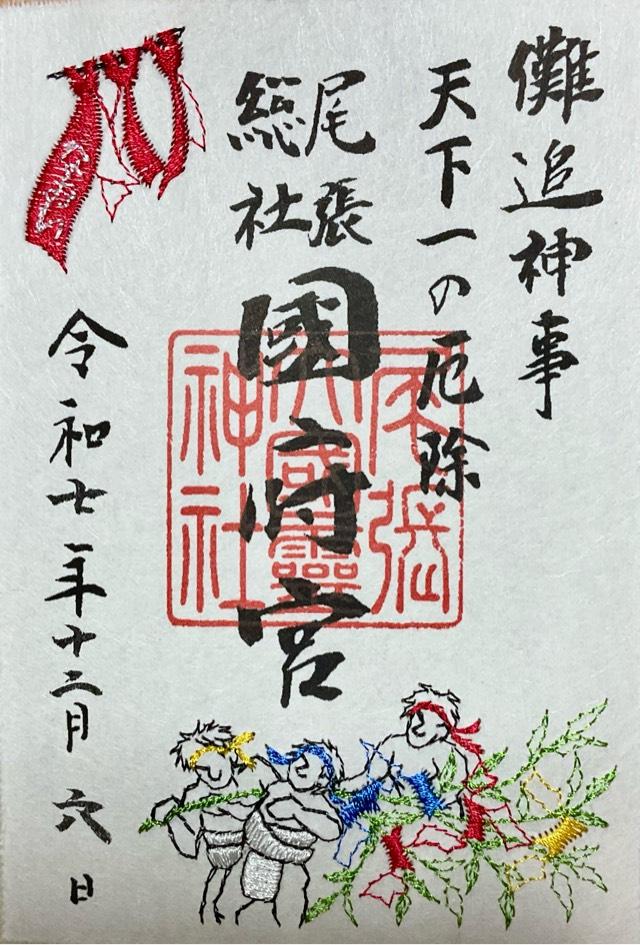 儺追神事
天下一の厄除
尾張
総社
國府宮
尾張
大國靈
神社
令和七年十二月六日